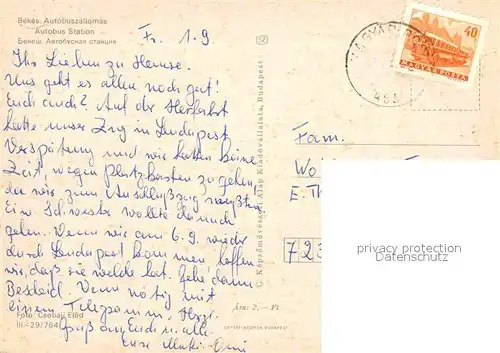 Békés, Autóbuszállomás
Autobus Station
Бекеш. Автобусная станция
Fr. 1.9.
Ihr Lieben zu Hause.
Uns geht es allen noch gut!
Euch auch? Auf der Herfahrt
hatte unser Zug in Budapest
Verspätung und wir hatten keine
Zeit, wegen Platzkarten zu gehen,
da wir zum Anschlußzug mußten.
Eine Schwester wollte danach
gehen. Wenn wir am 6.9. wieder
durch Budapest kommen hoffen
wir, daß sie welche hat. Gebe dann
Bescheid. Wenn nötig mit
einem Telegramm. Herzl.
Gruß an Euch u. alle
Eure Mutti - Omi
Foto: Csobaji Előd
III.-29/764
Ára: 2,- Ft
OFFSETNYOMDA BUDAPEST
© Képzőművészeti Alap Kiadóvállalata, Budapest
MAGYAR
40
MAGYAR POSTA
Fam.
E. Th
723
privacy protection
Datenschutz